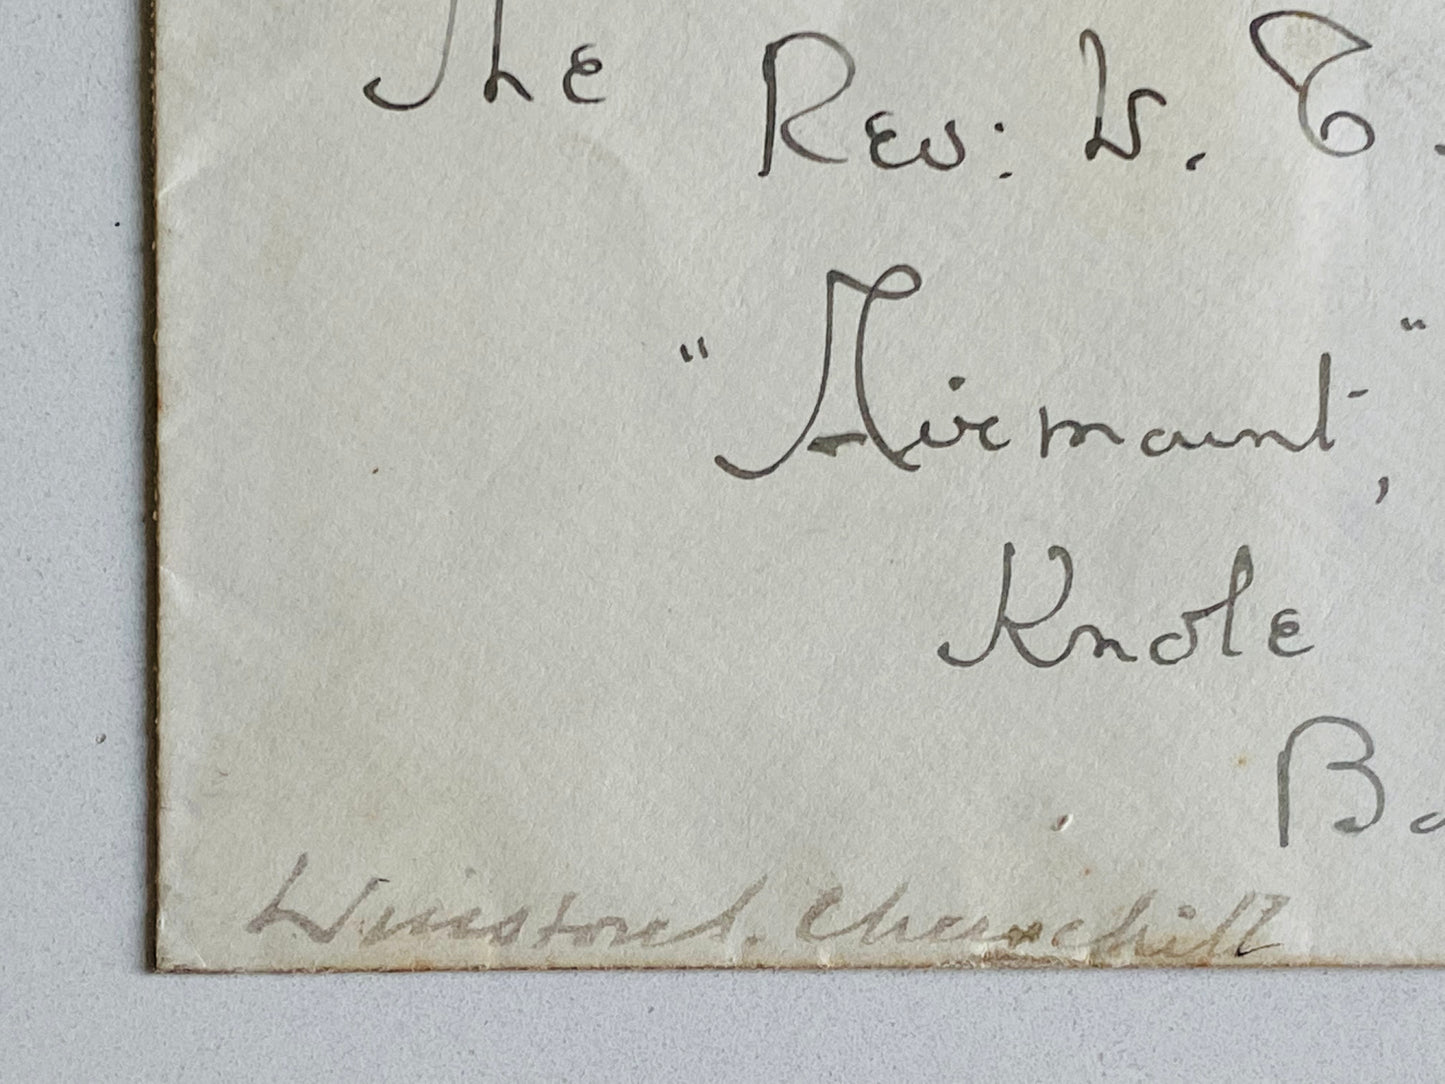 The Rev: W. E.
"Airmount",
Knole
Ba
Winston S. Churchill